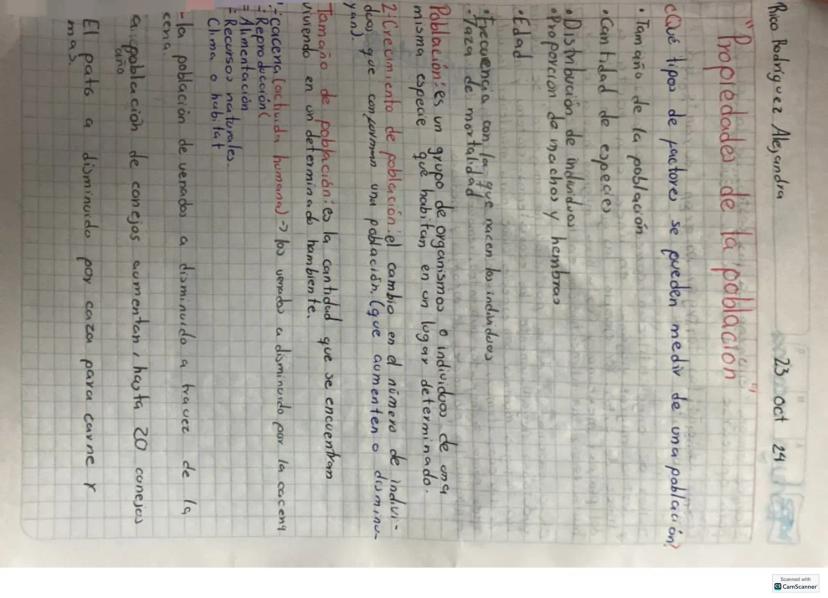 Rico Rodríguez Alejandra 23 oct 24
"Propiedades de la población"
¿Qué tipos de factores se pueden medir de una población?
• Tamaño de la población
• Cantidad de especies
• Distribución de individuos
• Proporción de machos y hembras
• Edad
• Frecuencia con la que nacen los individuos
• Taza de mortalidad
Población: es un grupo de organismos o individuos de una
misma especie que habitan en un lugar determinado.
2: Crecimiento de población: el cambio en el número de indivi-
duos que conforman una población. (que aumenten o disminu-
yan)
Tamaño de población: es la cantidad que se encuentram
viviendo en un determinado hambiente.
cacena (actividad humana) → los venados a disminuido por la cacena
- Reproducción (
= Alimentación
= Recursos naturales.
Clima o habitat
- la población de venados a disminuido a travez de la
cacena
a población de conejos aumentan, hasta 20 conejos
año
El pato a disminuido por caza para carne y
mas.
Scanned with
CamScanner